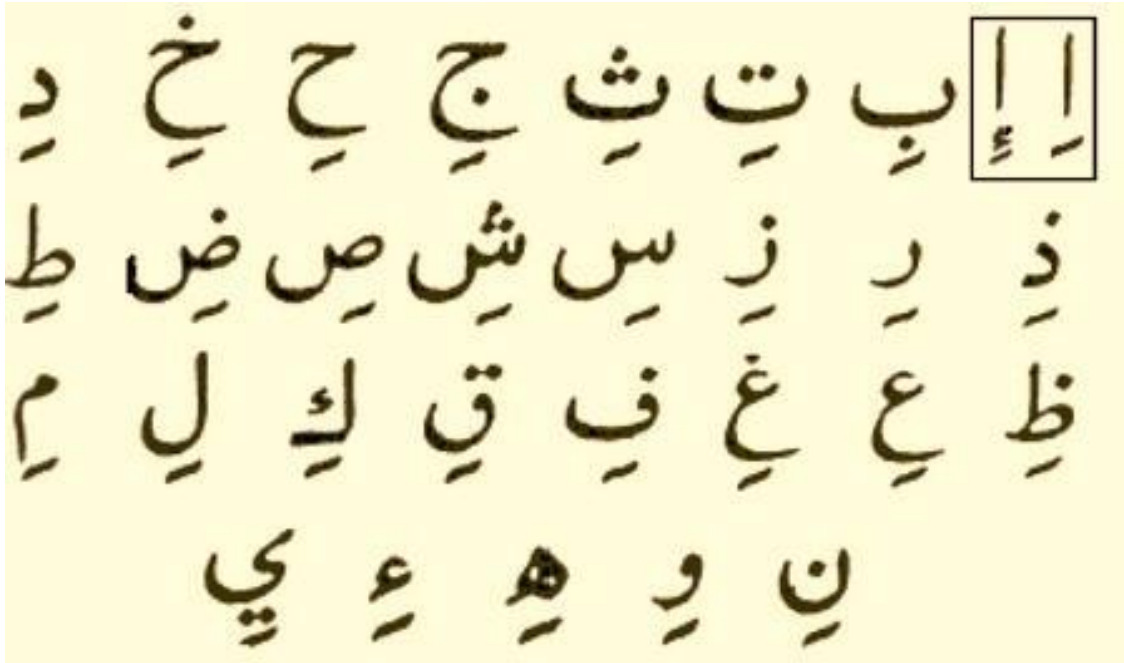 اِ إِ بِ تِ ثِ جِ حِ خِ دِ
ذِ رِ زِ سِ شِ صِ ضِ طِ
ظِ عِ غِ فِ قِ كِ لِ مِ
نِ وِ هِ ءِ يِ